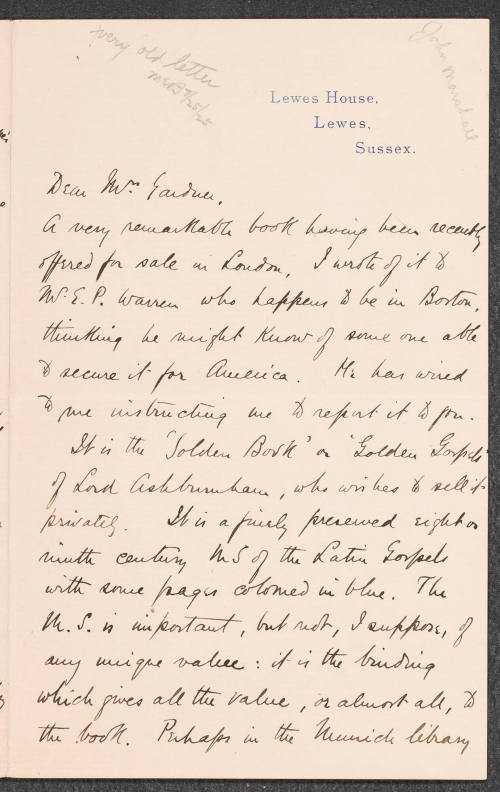 very old letter
John Marshall
Lewes House,
Lewes,
Sussex.
Dear Mrs. Gardner,
A very remarkable book having been recently
offered for sale in London, I wrote of it to
Mr. E. P. Warren who happens to be in Boston,
thinking he might know of some one able
to secure it for America. He has wired
to me instructing me to report it to you.
It is the 'Golden Book' or 'Golden Gospels'
of Lord Ashburnham, who wishes to sell it
privately. It is a finely preserved eight or
ninth century MS of the Latin Gospels
with some pages coloured in blue. The
M.S. is important, but not, I suppose, of
any unique value: it is the binding
which gives all the value, or almost all, to
the book. Perhaps in the Munich library